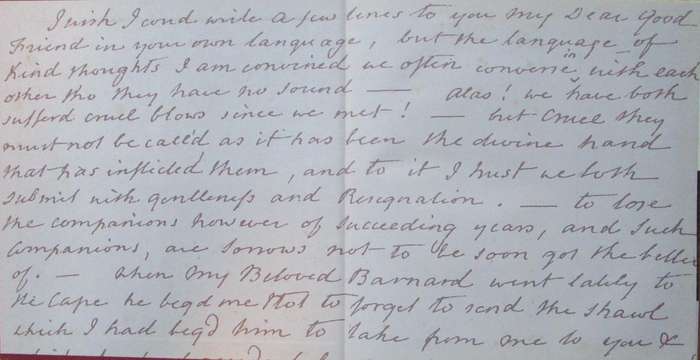 I wish I coud write a few lines to you my Dear Good
Friend in your own language, but the language of
Kind thoughts I am convinced we often converse in with each
other tho they have no sound — alas! we have both
sufferd cruel blows since we met! — but Cruel they
must not be calld as it has been the divine hand
that has inflicted them, and to it I trust we both
submit with gentleness and Resignation. — to lose
the companions however of succeeding years, and such
Companions, are sorrows not to be soon got the better
of. — when my Beloved Barnard went lately to
the Cape he begd me Not to forget to send the shawl
which I had begd him to take from me to you &